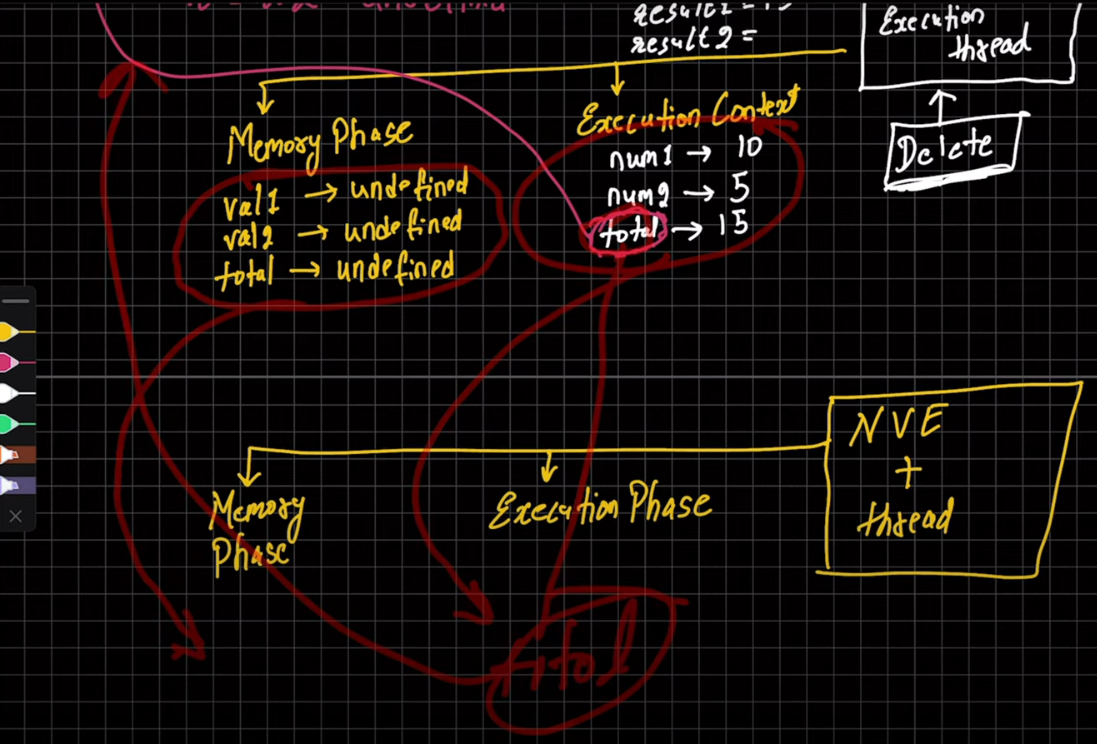 undefined
result1 = 15
result2 =
Execution
thread
Memory Phase
val1 → undefined
val2 → undefined
total → undefined
Execution Context
num1 → 10
num2 → 5
total → 15
Delete
Memory
Phase
Execution Phase
NVE
+
thread
total